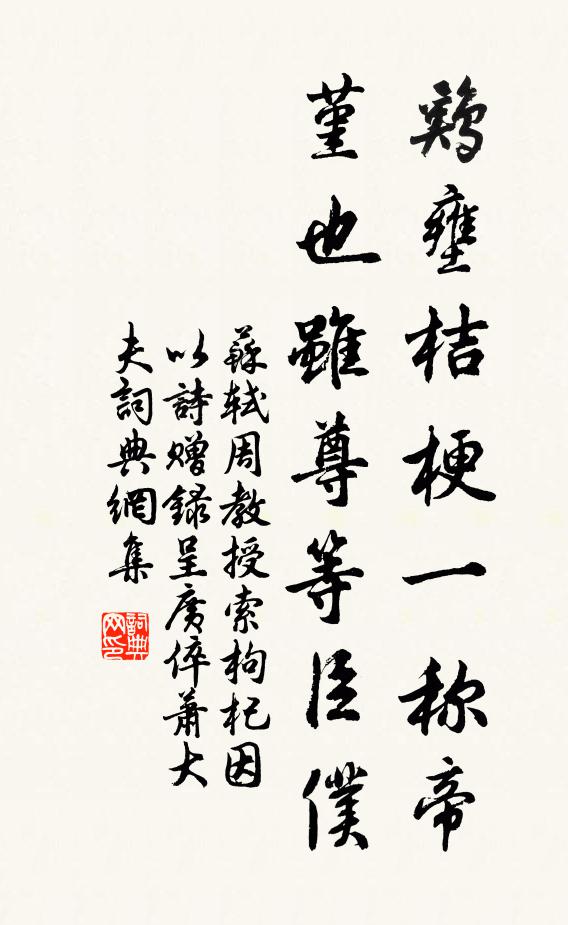 鷄壅桔梗一称帝
堇也雖尊等臣僕
蘇軾周教授索枸杞因
以詩贈錄呈廣倅蕭大
夫詞典網集
詞典
网印